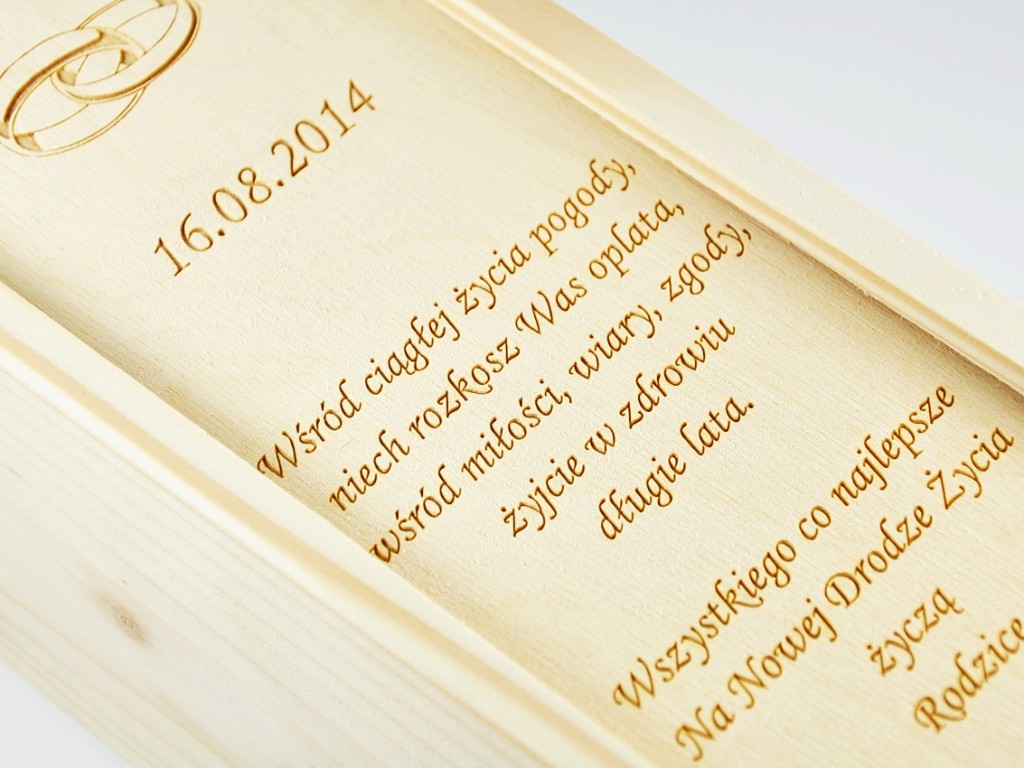 16.08.2014
Wśród ciągłej życia pogody,
niech rozkosz Was oplata,
wśród miłości, wiary, zgody,
żyjcie w zdrowiu
długie lata.
Wszystkiego co najlepsze
Na Nowej Drodze Życia
życzą
Rodzice